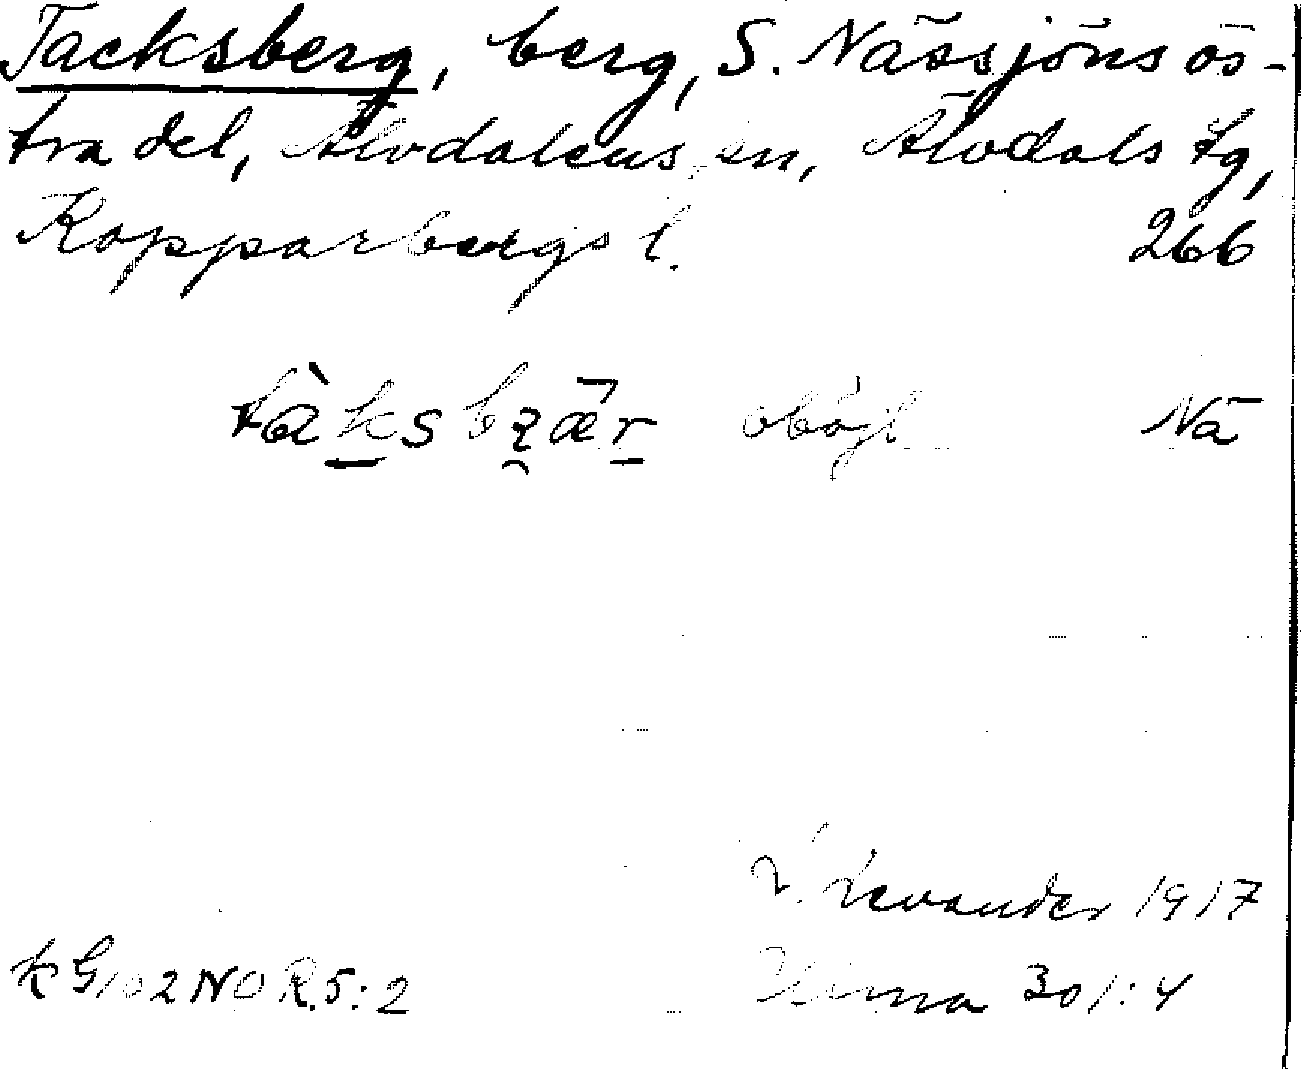 Tacksberg, berg, S. Nässjöns ös-
tra del, Älvdalens sn, Älvdals tg,
Kopparbergs l. 266
tàksbʐǣr oböjl Nä
L. Levander 1917
KG102NOR.5:2 Hema 301:4